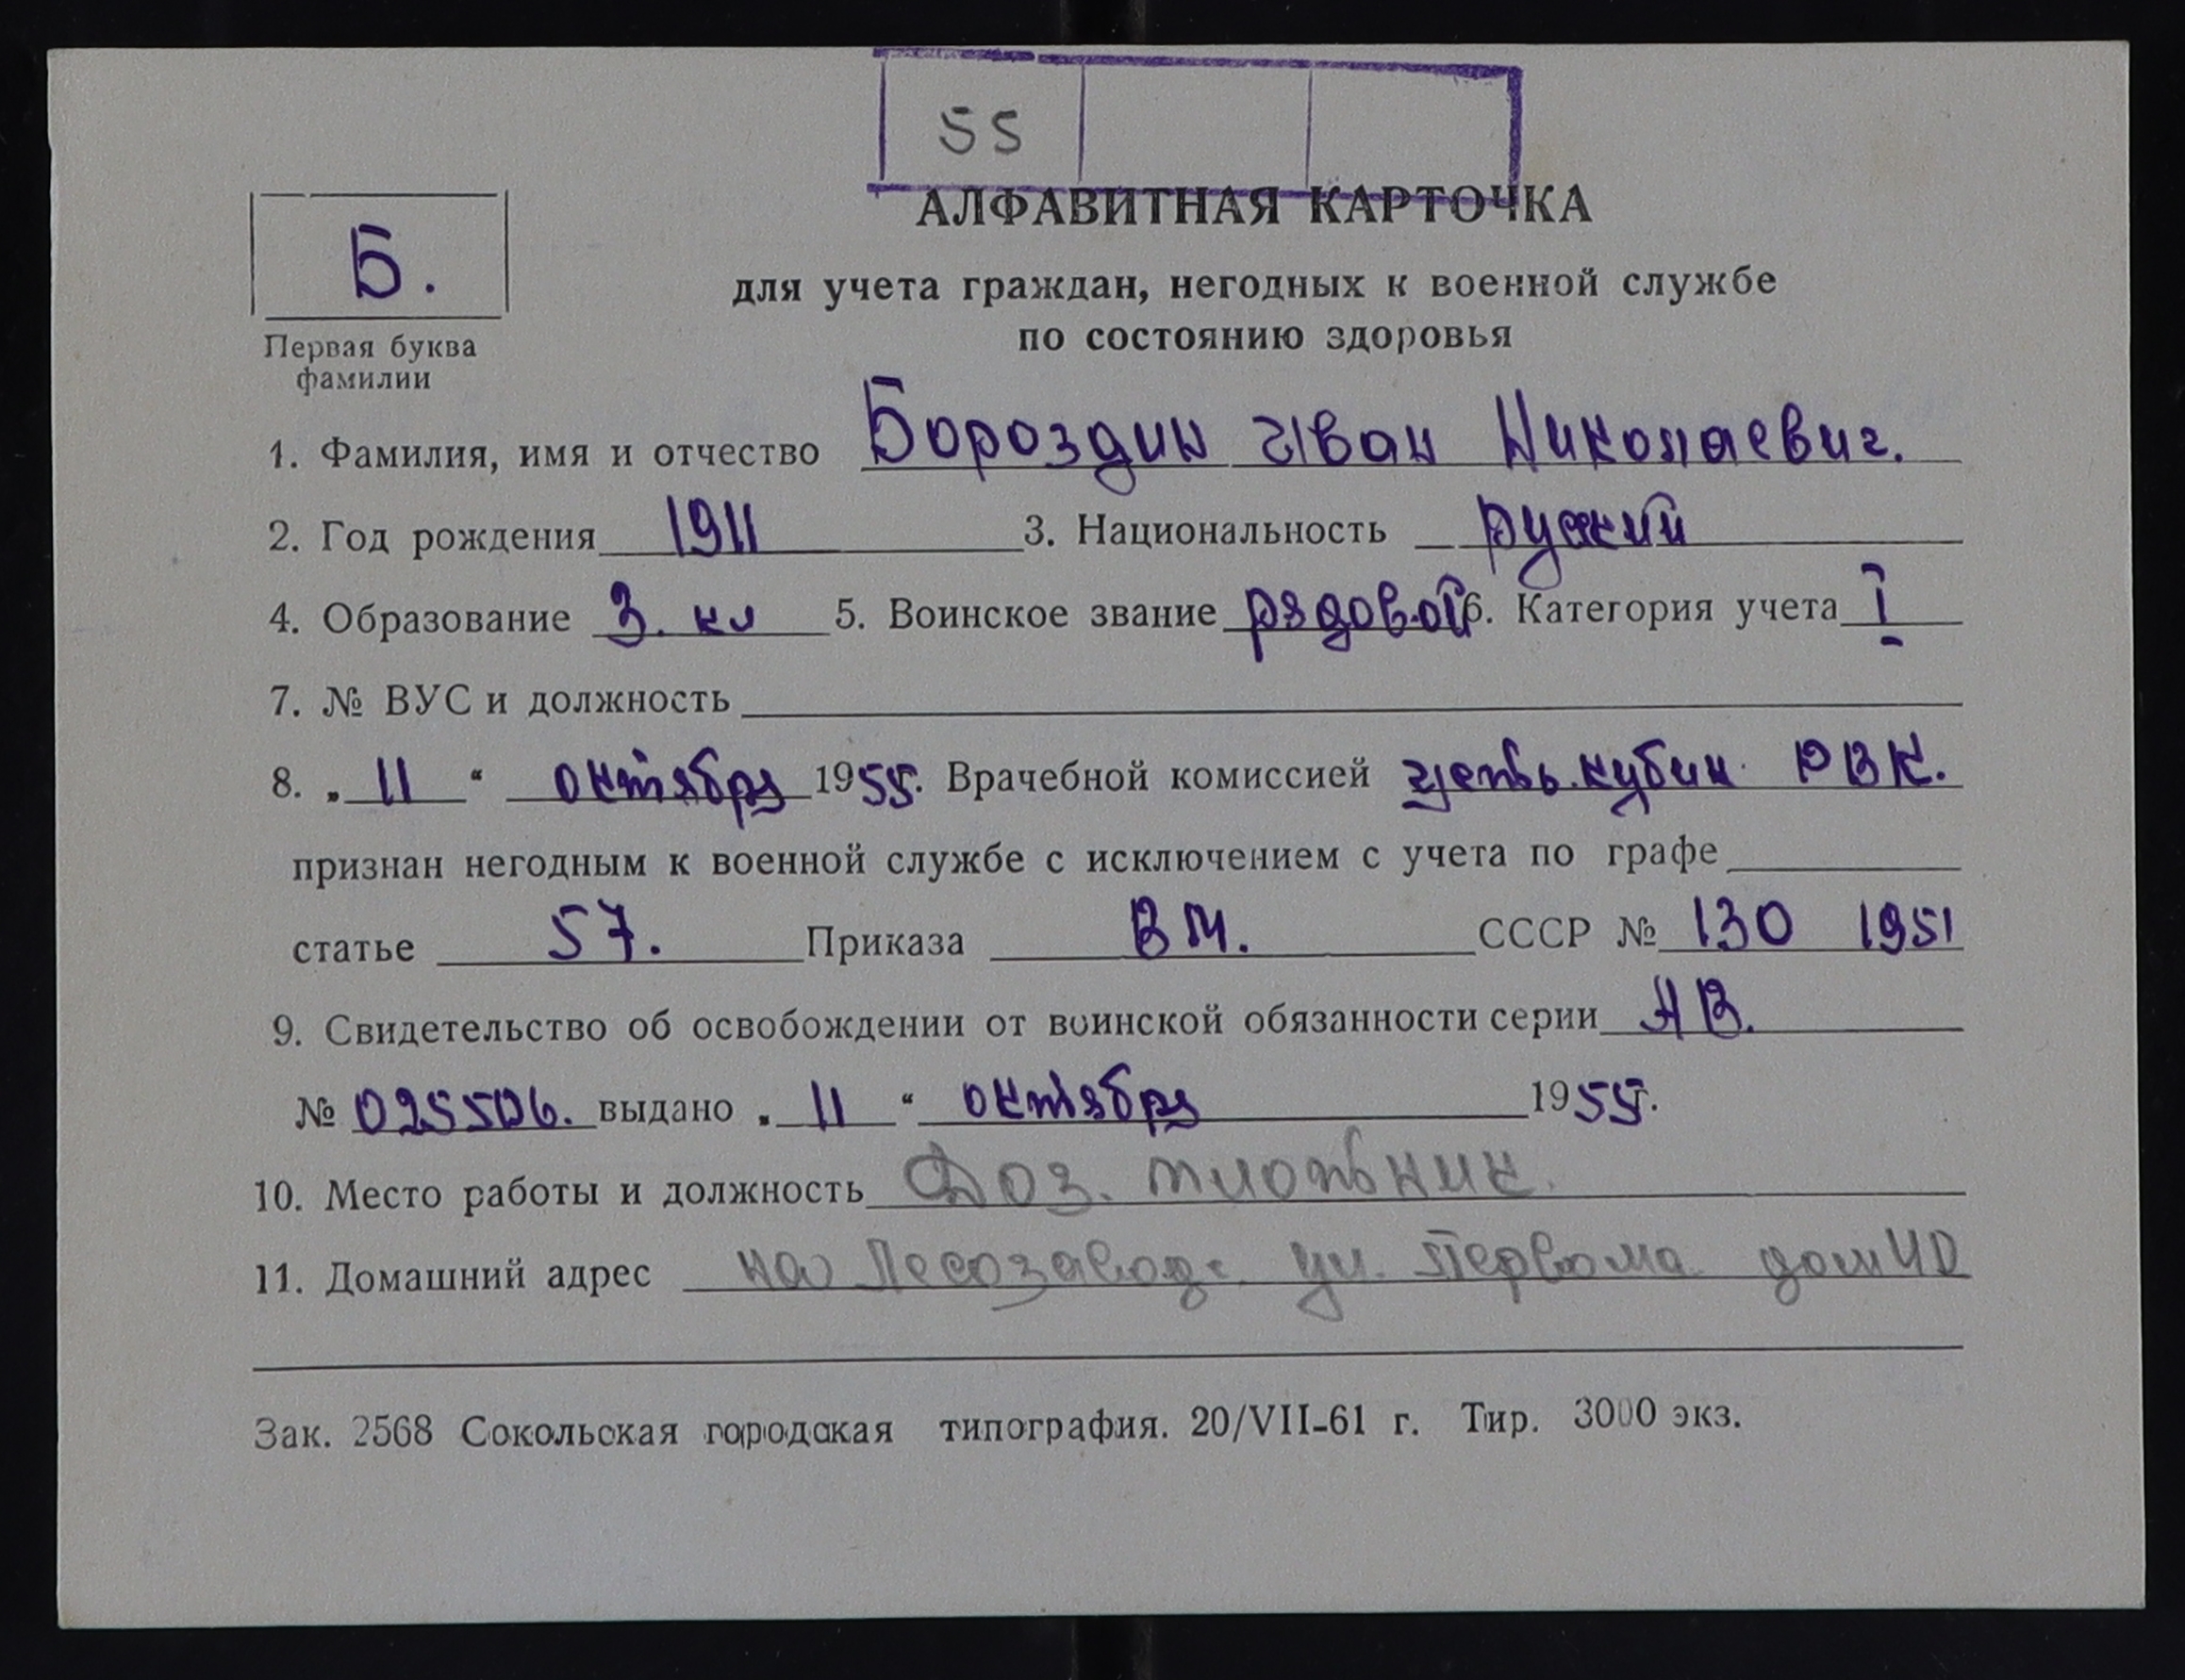 55
АЛФАВИТНАЯ КАРТОЧКА
Б.
для учета граждан, негодных к военной службе
по состоянию здоровья
Первая буква
фамилии
1. Фамилия, имя и отчество Бороздин Иван Николаевич.
2. Год рождения 1911 3. Национальность русский
4. Образование 3. кл 5. Воинское звание рядовой 6. Категория учета I
7. № ВУС и должность
8. „ 11 “ октября 1955г. Врачебной комиссией Усть.кубин. РВК.
признан негодным к военной службе с исключением с учета по графе
статье 57. Приказа ВМ. СССР № 130 1951
9. Свидетельство об освобождении от воинской обязанности серии АВ.
№ 025506. выдано „ 11 “ октября 1955г.
10. Место работы и должность Доз.
11. Домашний адрес на Лесозаводе ул. Первома дом 40
Зак. 2568 Сокольская городская типография. 20/VII-61 г. Тир. 3000 экз.